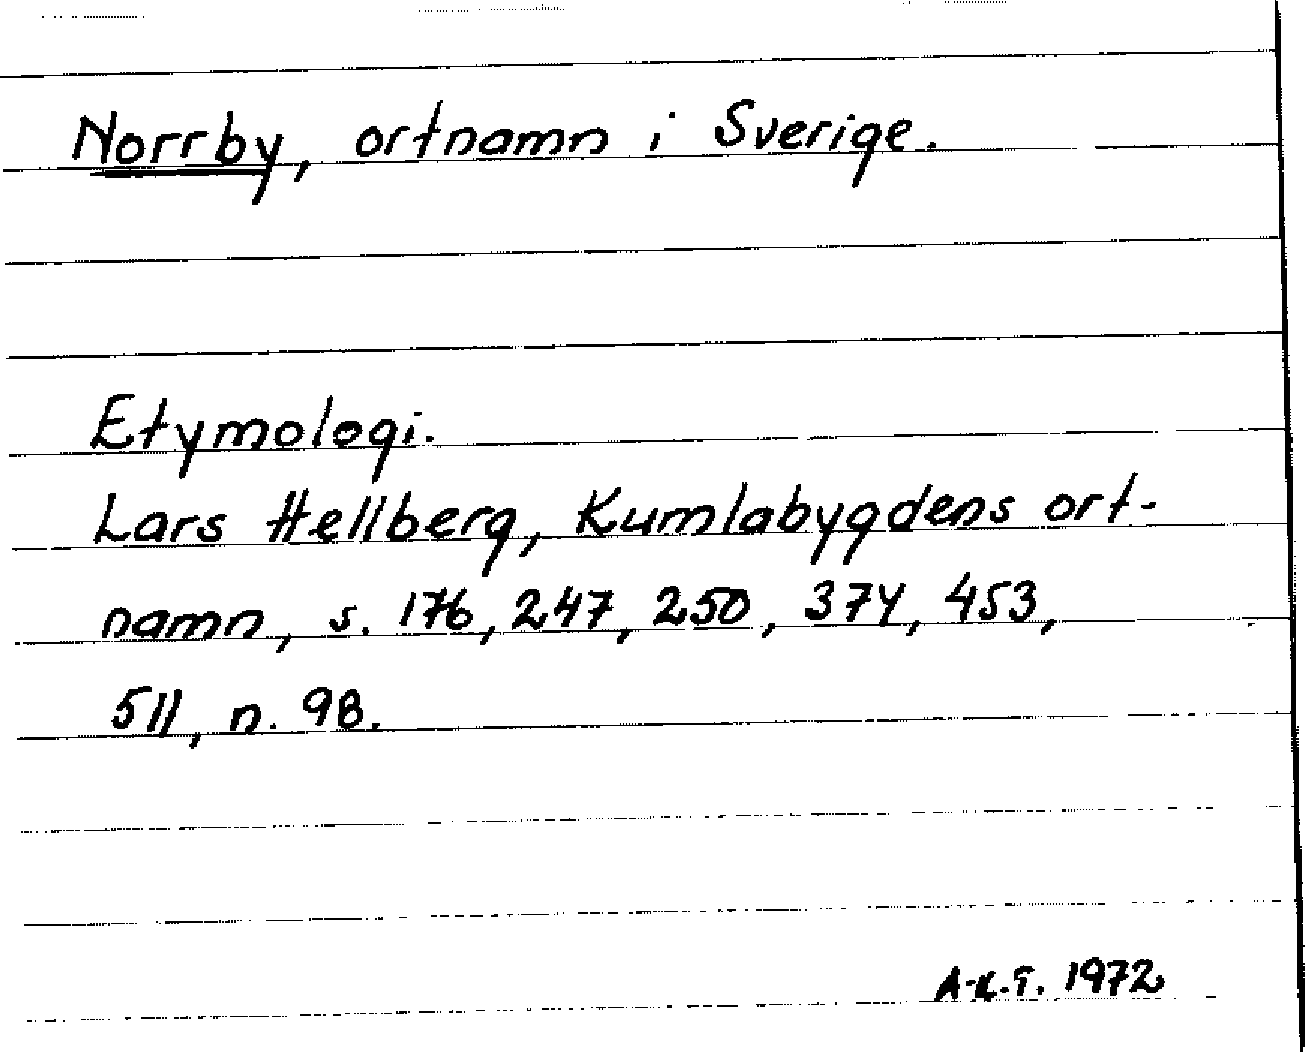 Norrby, ortnamn i Sverige.
Etymologi.
Lars Hellberg, Kumlabygdens ort-
namn, s. 176, 247, 250, 374, 453,
511, n. 98.
A-K.T. 1972